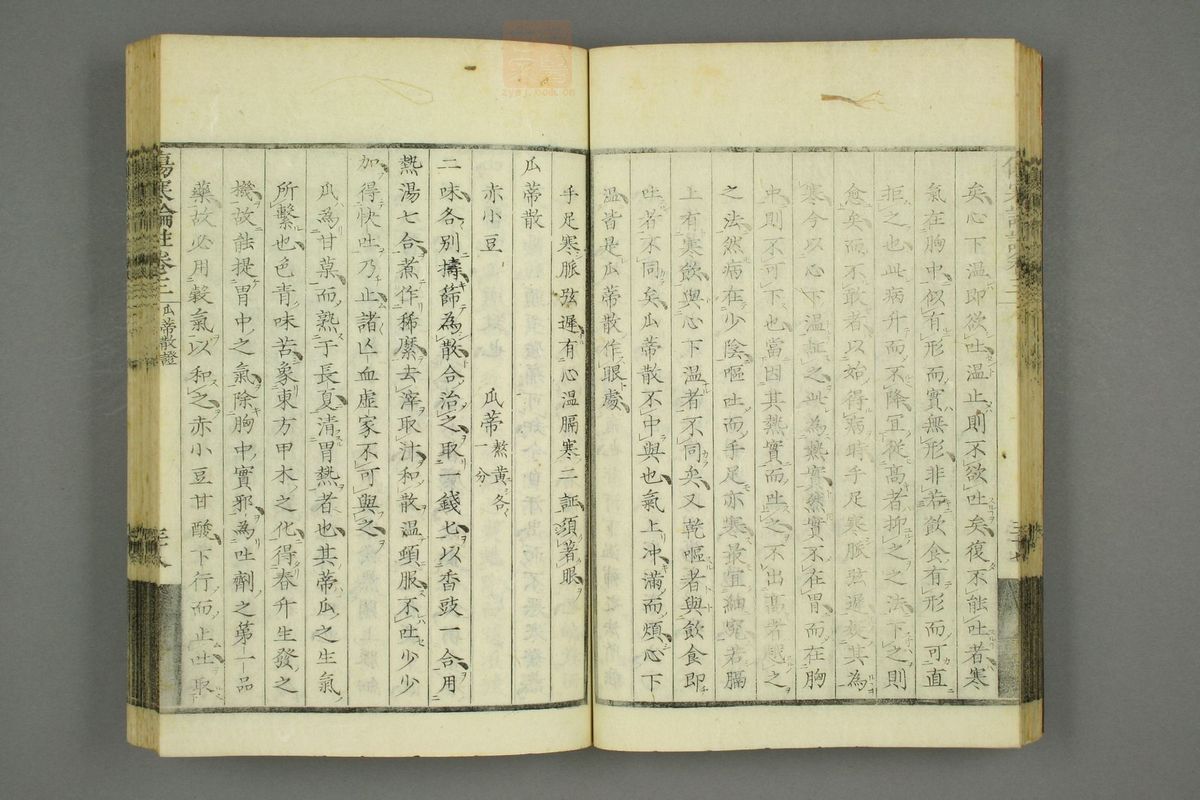 矣心下温即欲吐温止則不欲吐矣復不能吐者寒
氣在胸中似有形而實無形非若飲食有形而可直
拒之也此病升而不降宜從高者抑之之法下之則
愈矣而不敢者以始得病時手足寒脈弦遲故其為
寒今以心下温証之此為熱實然實不在胃而在胸
中則不可下也當因其熱實而吐之不出高者越之
之法然病在少陰嘔吐而手足亦寒最宜細究若膈
上有寒飲與心下温者不同矣又乾嘔者與飲食即
吐者不同矣瓜蒂散不中與也氣上冲滿而煩心下
温皆是瓜蒂散作眼處
手足寒脈弦遲有心温膈寒二証須著眼
瓜蒂散
赤小豆 瓜蒂 熬黃各一分
二味各別擣篩為散合治之取一錢匕以香豉一合用
熱湯七合煮作稀糜去滓取汁和散温頓服不吐少少
加得快吐乃止諸亡血虛家不可與之
瓜為甘菓而熟于長夏清胃熱者也其蒂瓜之生氣
所繫也色青味苦象東方甲木之化得春升生發之
機故能提胃中之氣除胸中實邪為吐劑之第一品
藥故必用穀氣以和之赤小豆甘酸下行而止吐取
傷寒論註卷三 瓜蒂散證